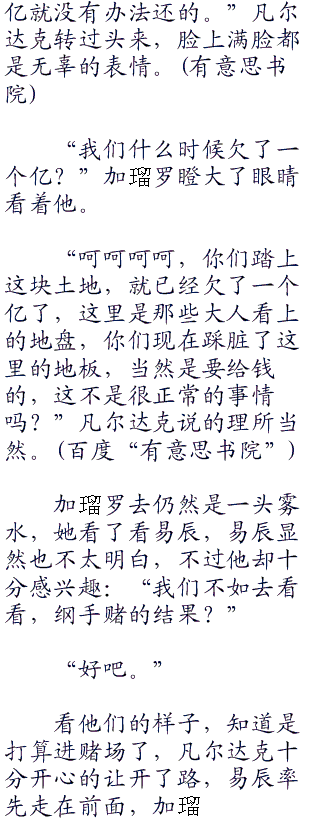 亿就没有办法还的。”凡尔
达克转过头来，脸上满脸都
是无辜的表情。(有意思书
院)
“我们什么时候欠了一
个亿？”加瑠罗瞪大了眼睛
看着他。
“呵呵呵呵，你们踏上
这块土地，就已经欠了一个
亿了，这里是那些大人看上
的地盘，你们现在踩脏了这
里的地板，当然是要给钱
的，这不是很正常的事情
吗？”凡尔达克说的理所当
然。(百度“有意思书院”)
加瑠罗去仍然是一头雾
水，她看了看易辰，易辰显
然也不太明白，不过他却十
分感兴趣：“我们不如去看
看，纲手赌的结果？”
“好吧。”
看他们的样子，知道是
打算进赌场了，凡尔达克十
分开心的让开了路，易辰率
先走在前面，加瑠